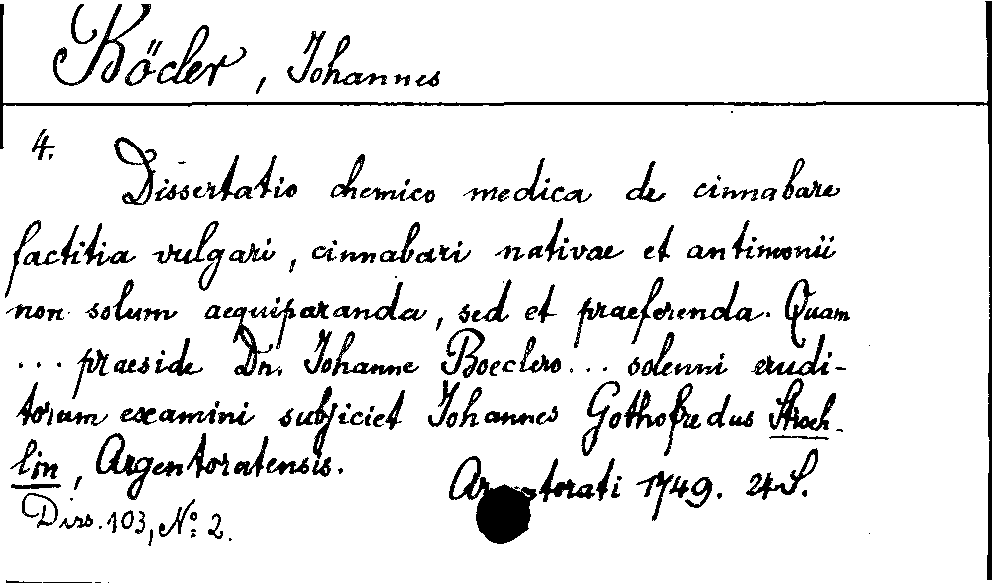 Böcler, Johannes
4.
Dissertatio chemico medica de cinnabare
factitia vulgari, cinnabari nativae et antimonii
non solum aequiparanda, sed et praeferenda. Quam
... praeside Dn. Johanne Boeclero... solenni erudi-
torum examini subjiciet Johannes Gothofredus Stroeh-
lin, Argentoratensis.
Argentorati 1749. 24 S.
Diss. 103, No: 2.